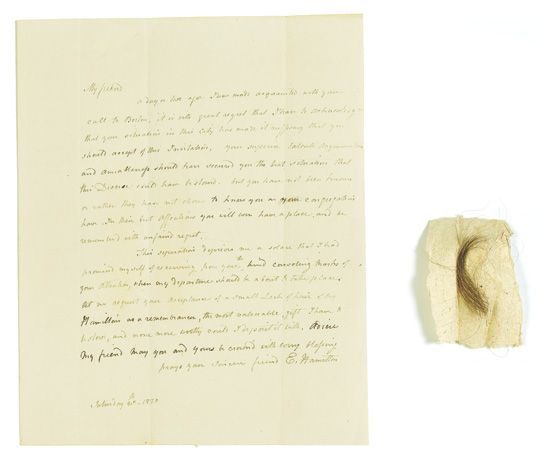 My friend
a day or two ago I was made acquainted with your
call to Boston, it is with great regret that I have to acknowledge
that your situation in this City has made it necessary that you
should accept of this Invitation, your superior talents
and should have secured you the best situation that
this could have bestowed. but you have not been known
or rather they have not chose to know you as your congregation
have. In their best Affections you will ever have a place, and be
remembered with unfeigned regret.
This separation deprives me a solace that I had
promised myself of receiving from you, the kind consoling marks of
your attention, when my departure should be about to take place.
Let me request your acceptance of a small Lock of hair of my
Hamilton as a remembrance, the most valuable gift I have to
bestow, and none more worthy could I deposit it with,
My friend may you and yours be crowned with every blessing
prays your Sincere friend E. Hamilton
Saturday